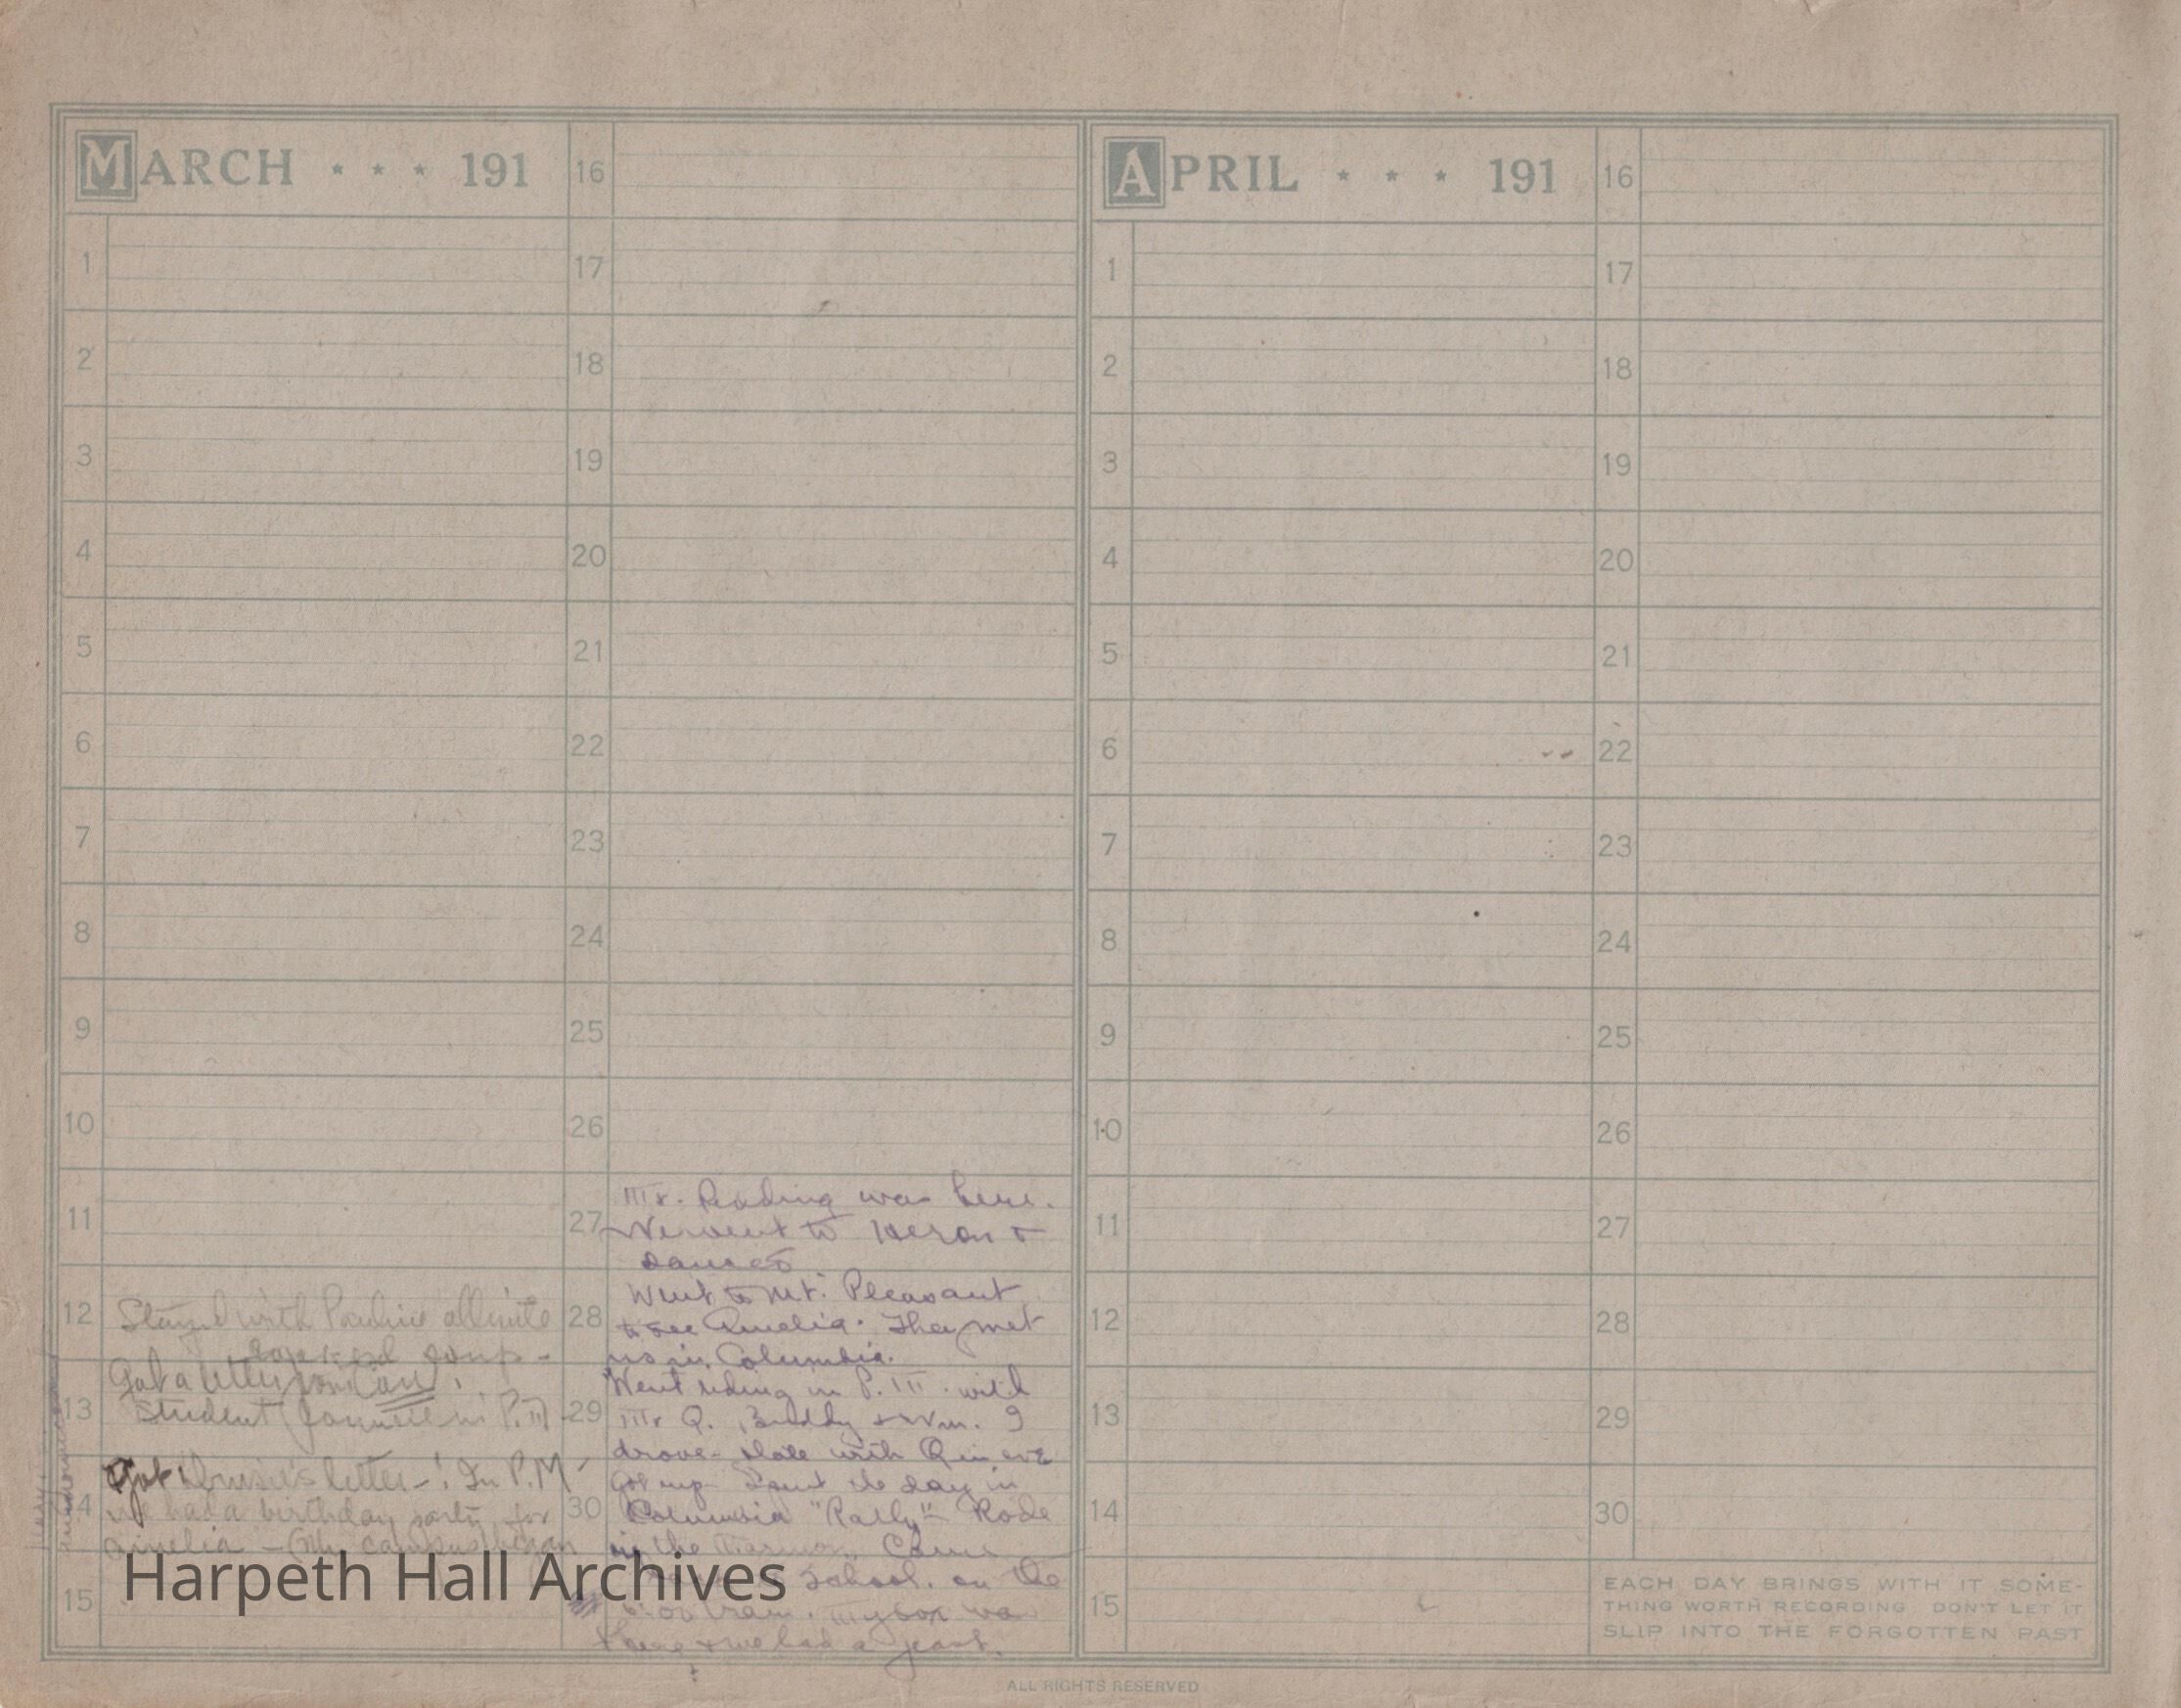 MARCH * * * 191
1
2
3
4
5
6
7
8
9
10
11
12 Stayed with Pauline all nite
soup -
13 Got a letter from
Student in P.M
14 Got letter - ! In P.M -
we had a birthday party for
Amelia - (My began
15
16
17
18
19
20
21
22
23
24
25
26
27 Mr. was here.
We went to &
dance
28 Went to Mt. Pleasant
to see Amelia. They met
us in Columbia.
29 Went riding in P.M. with
Mr Q. Buddy & Wm. I
drove - date with Q in eve
30 Got up Spent the day in
Columbia "Rally" - Rode
in the Came
School. on the
train. My box was
here & we had a feast.
APRIL * * * 191
1
2
3
4
5
6
7
8
9
10
11
12
13
14
15
16
17
18
19
20
21
22
23
24
25
26
27
28
29
30
EACH DAY BRINGS WITH IT SOME-
THING WORTH RECORDING DON'T LET IT
SLIP INTO THE FORGOTTEN PAST
ALL RIGHTS RESERVED
Harpeth Hall Archives